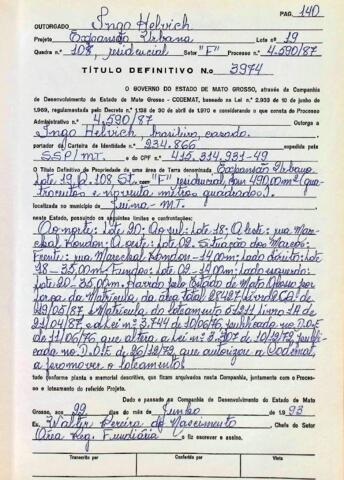 PAG. 140
OUTORGADO Ingo Helvich
Projeto Expansão Urbana Lote nº 19
Quadra n.º 108, residencial Setor "F" Processo n.º 4.590/87
TÍTULO DEFINITIVO N.o 3974
O GOVERNO DO ESTADO DE MATO GROSSO, através da Companhia
de Desenvolvimento do Estado de Mato Grosso - CODEMAT, baseado na Lei n.º 2.939 de 10 de junho de
1969, regulamentada pelo Decreto n.º 1.138 de 30 de abril de 1970 e considerando o que consta do Processo
Administrativo n.º 4.590/87 Outorga a
Ingo Helvich, brasileiro, casado,
portador da Carteira de Identidade n.º 234.866
SSP/MT. e do CPF n.º 415.314.931-49
O Título Definitivo de Propriedade de uma área de Terra denominada Expansão Urbana
Lote 19, Q. 108, ST. "F" residencial, com 490,00m² (qua-
trocentos e noventa metros quadrados).
localizada no município de Juína-MT.
neste Estado, possuindo os seguintes limites e confrontações:
Ao norte: Lote 20; Ao sul: Lote 18; A leste: rua Mare-
chal Rondon; A oeste: Lote 02. Situação dos Marcos:
Frente: rua Marechal Rondon - 14,00m; Lado direito: Lote
18 - 35,00m. Fundos: Lote 02 - 14,00m Lado esquerdo:
Lote 20 - 35,00m. Havido pelo Estado de Mato Grosso por
força da Matrícula da área total 28427 Livro CQ de
19/05/87 e Matrícula do loteamento 51211 livro 1A de
21/04/87 e a Lei nº 3.744 de 10/06/76, publicada no D.O.E
de 11/06/76, que altera a Lei nº 3.307 de 10/12/72, publi-
cada no D.O.E de 26/12/72, que autorizou a Codemat,
a promover o loteamento.
tudo conforme planta e memorial descritivo, que ficam arquivados nesta Companhia, juntamente com o Proces-
so e loteamento do referido Projeto.
Dado e passado na Companhia de Desenvolvimento do Estado de Mato
Grosso, aos 22 dias do mês de Junho de 1.993
Eu, Walter Pereira do Nascimento
Área Reg. Fundiária o fiz escrever e assino.
Transcrito por
Conferido por
Visto